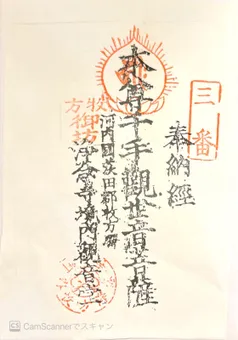 三番
奉納經
本尊千手觀世音菩薩
河内國茨田郡枚方宿
浄念寺境内觀音堂
枚方
御坊
CS CamScannerでスキャン